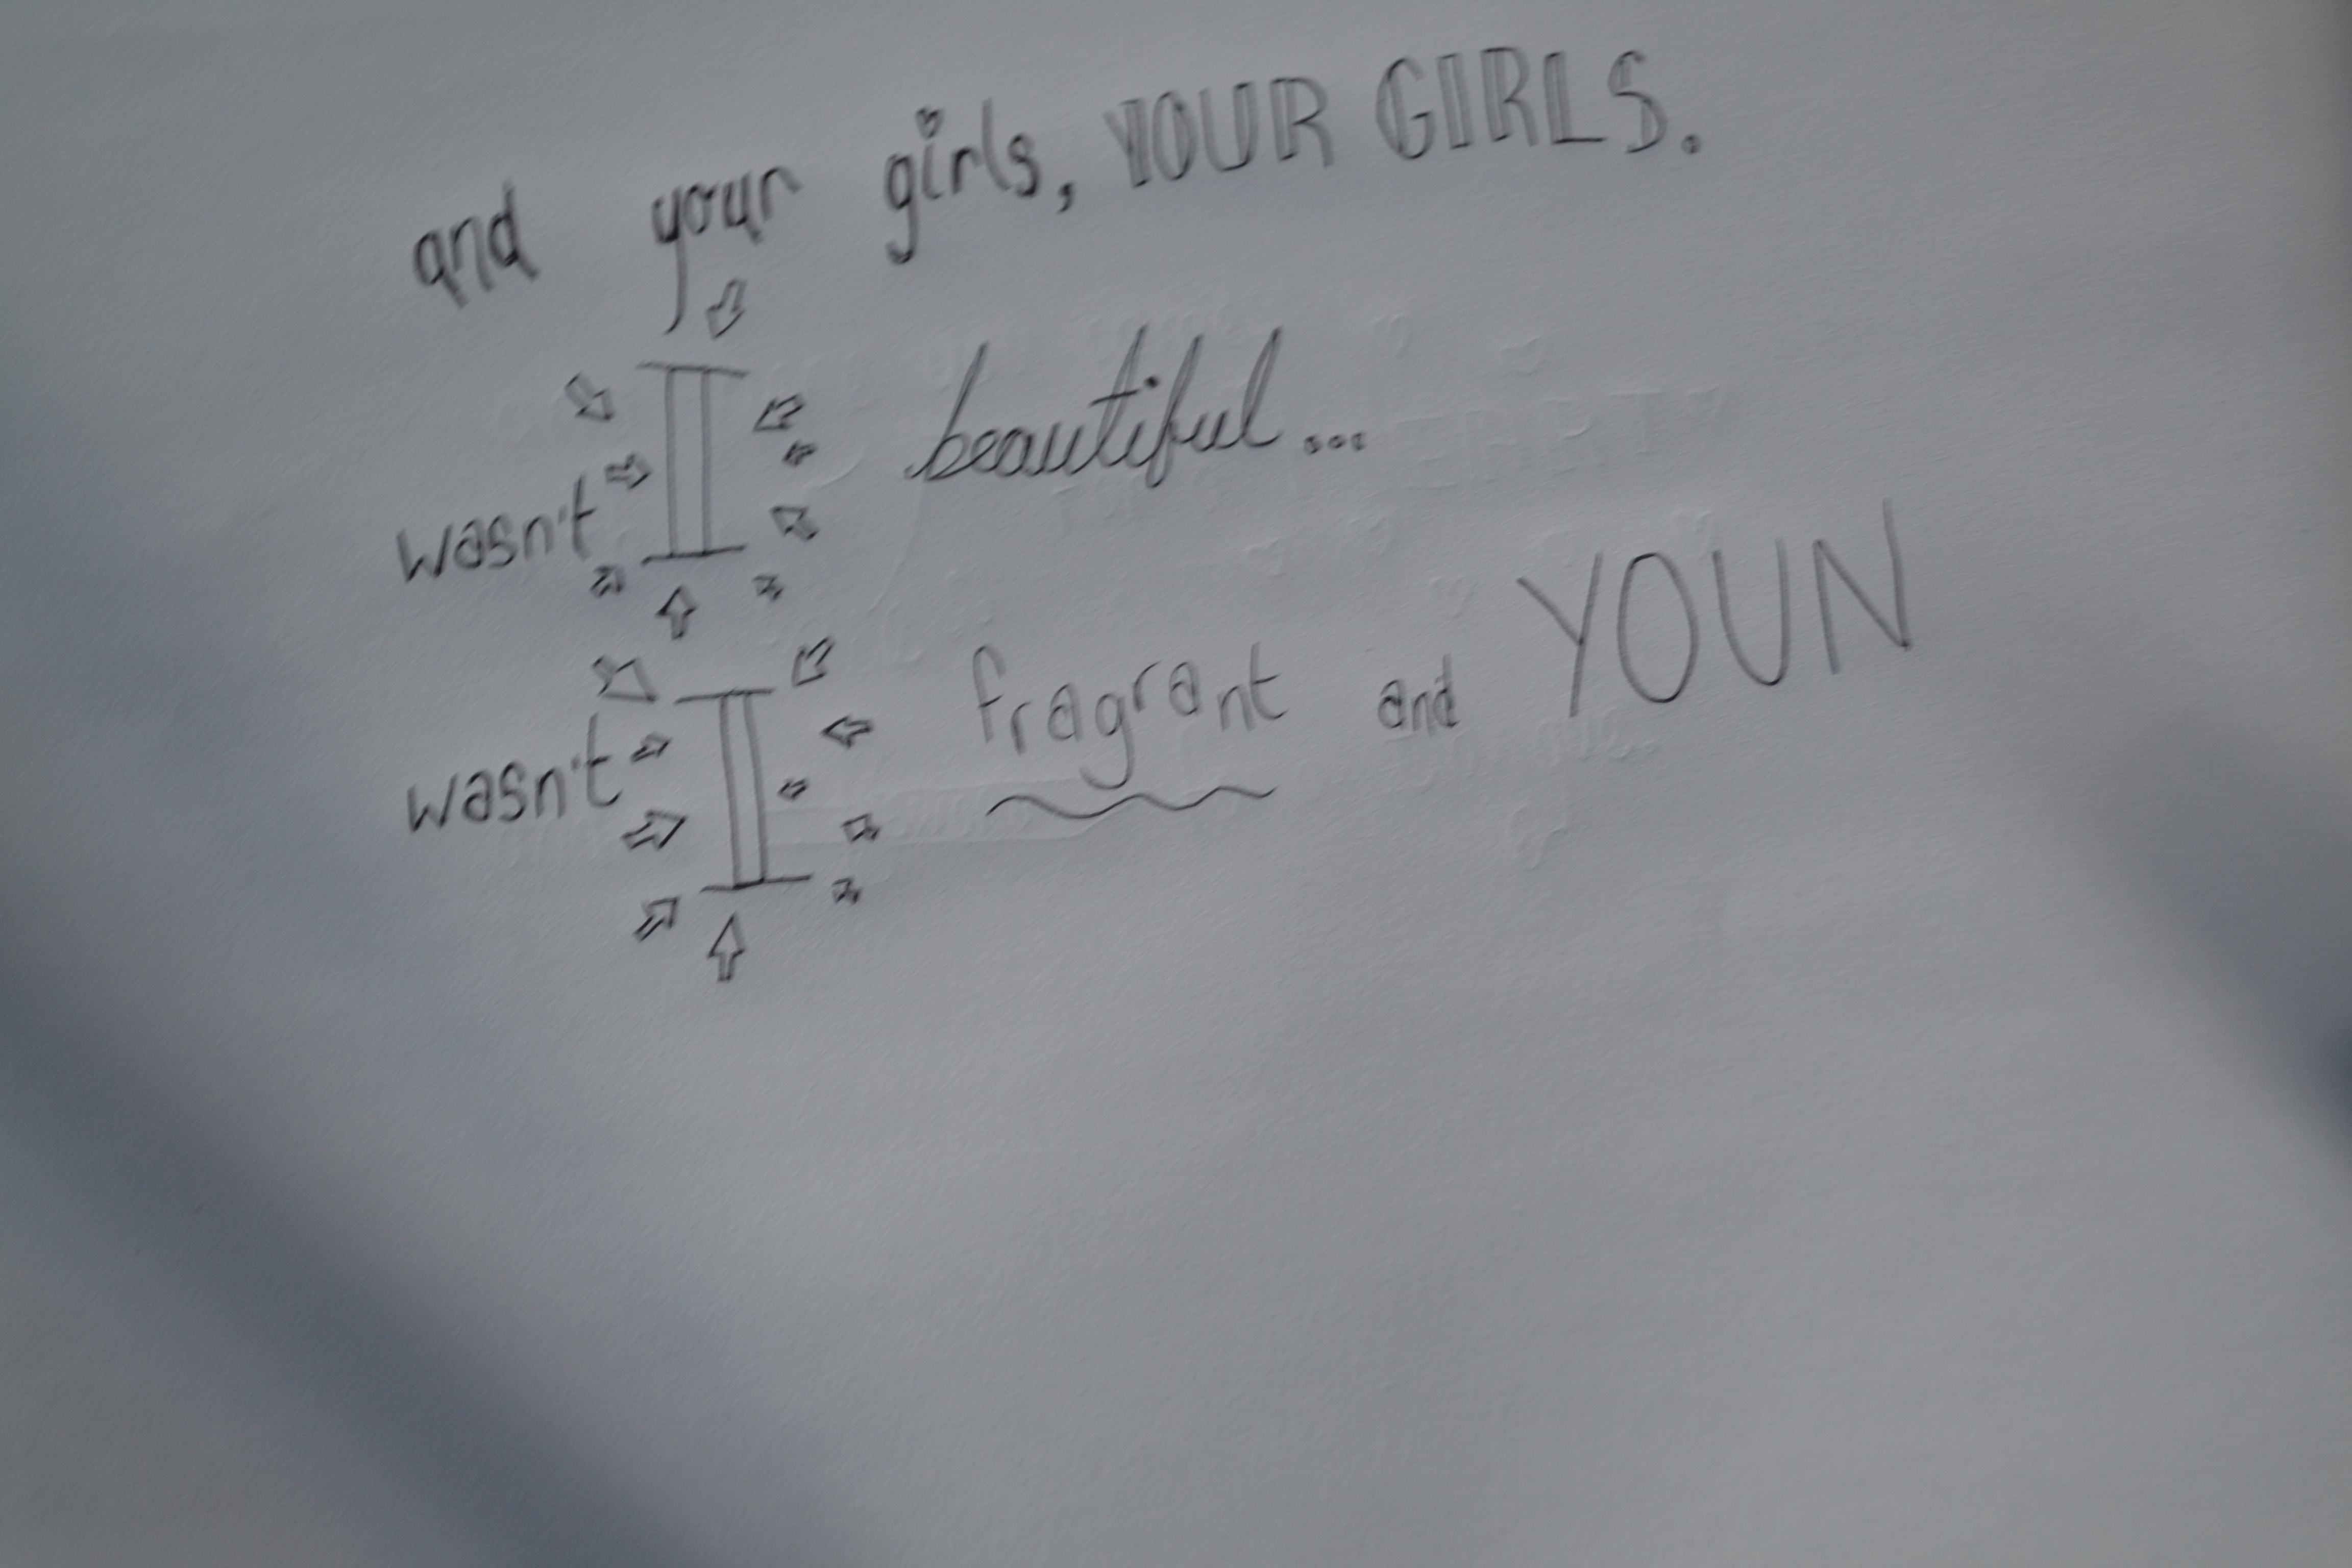 and your girls, YOUR GIRLS.
wasn't I beautiful...
wasn't I fragrant and YOUN